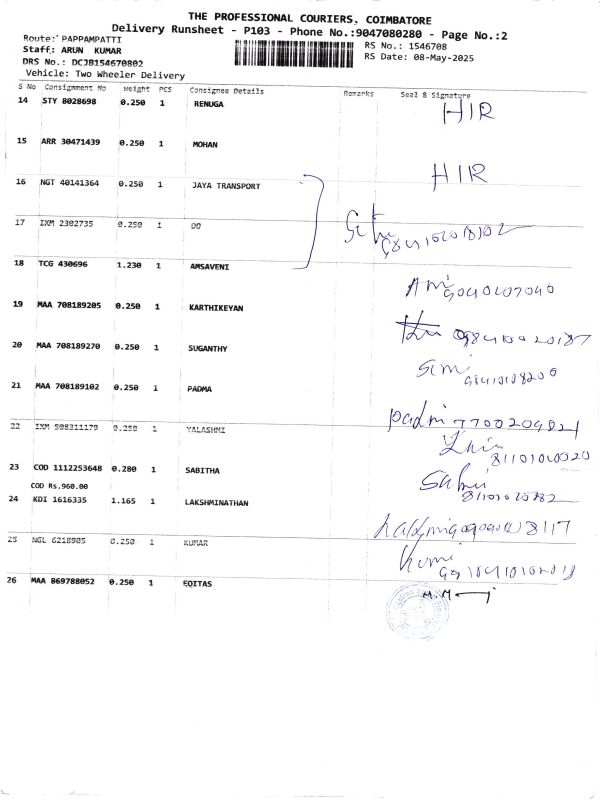 THE PROFESSIONAL COURIERS, COIMBATORE
Delivery Runsheet - P103 - Phone No.:9047080280 - Page No.:2
Route: PAPPAMPATTI
RS No.: 1546708
Staff: ARUN KUMAR
RS Date: 08-May-2025
DRS No.: DCJB154670802
Vehicle: Two Wheeler Delivery
S No Consignment No Weight PCS Consignee Details Remarks Seal & Signature
14 STY 8028698 0.250 1 RENUGA HIR
15 ARR 30471439 0.250 1 MOHAN HIR
16 NGT 40141364 0.250 1 JAYA TRANSPORT
17 IXM 2302735 0.250 1 DO
18 TCG 430696 1.230 1 AMSAVENI
19 MAA 708189205 0.250 1 KARTHIKEYAN
20 MAA 708189270 0.250 1 SUGANTHY
21 MAA 708189102 0.250 1 PADMA padmi 7700209821
22 IXM 508311179 0.250 1 YALASHMI
23 COD 1112253648 0.280 1 SABITHA
COD Rs.960.00
24 KDI 1616335 1.165 1 LAKSHMINATHAN
25 NGL 6218905 0.250 1 KUMAR
26 MAA 869788052 0.250 1 EQITAS